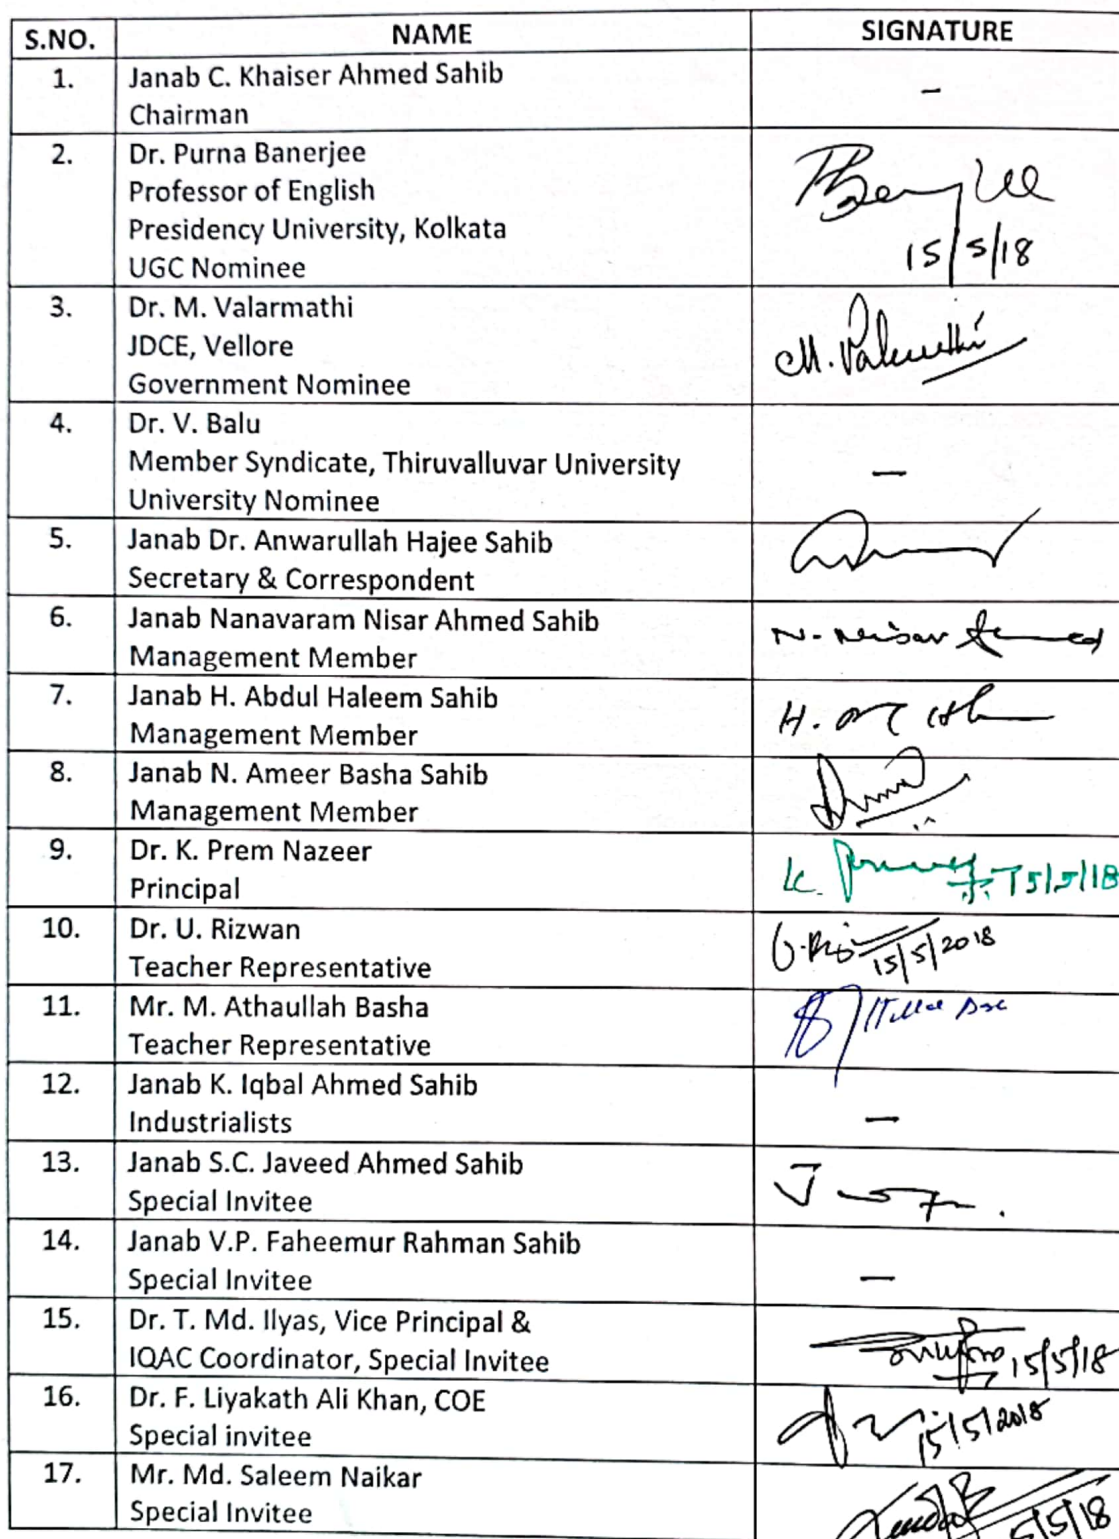 S.NO. NAME SIGNATURE
1. Janab C. Khaiser Ahmed Sahib
Chairman
–
2. Dr. Purna Banerjee
Professor of English
Presidency University, Kolkata
UGC Nominee
15/5/18
3. Dr. M. Valarmathi
JDCE, Vellore
Government Nominee
M. Valarmathi
4. Dr. V. Balu
Member Syndicate, Thiruvalluvar University
University Nominee
–
5. Janab Dr. Anwarullah Hajee Sahib
Secretary & Correspondent
6. Janab Nanavaram Nisar Ahmed Sahib
Management Member
N. Nisar Ahmed
7. Janab H. Abdul Haleem Sahib
Management Member
H.
8. Janab N. Ameer Basha Sahib
Management Member
9. Dr. K. Prem Nazeer
Principal
K. 15/5/18
10. Dr. U. Rizwan
Teacher Representative
U. Riz 15/5/2018
11. Mr. M. Athaullah Basha
Teacher Representative
12. Janab K. Iqbal Ahmed Sahib
Industrialists
–
13. Janab S.C. Javeed Ahmed Sahib
Special Invitee
J
14. Janab V.P. Faheemur Rahman Sahib
Special Invitee
–
15. Dr. T. Md. Ilyas, Vice Principal &
IQAC Coordinator, Special Invitee
15/5/18
16. Dr. F. Liyakath Ali Khan, COE
Special invitee
15/5/2018
17. Mr. Md. Saleem Naikar
Special Invitee
5/5/18